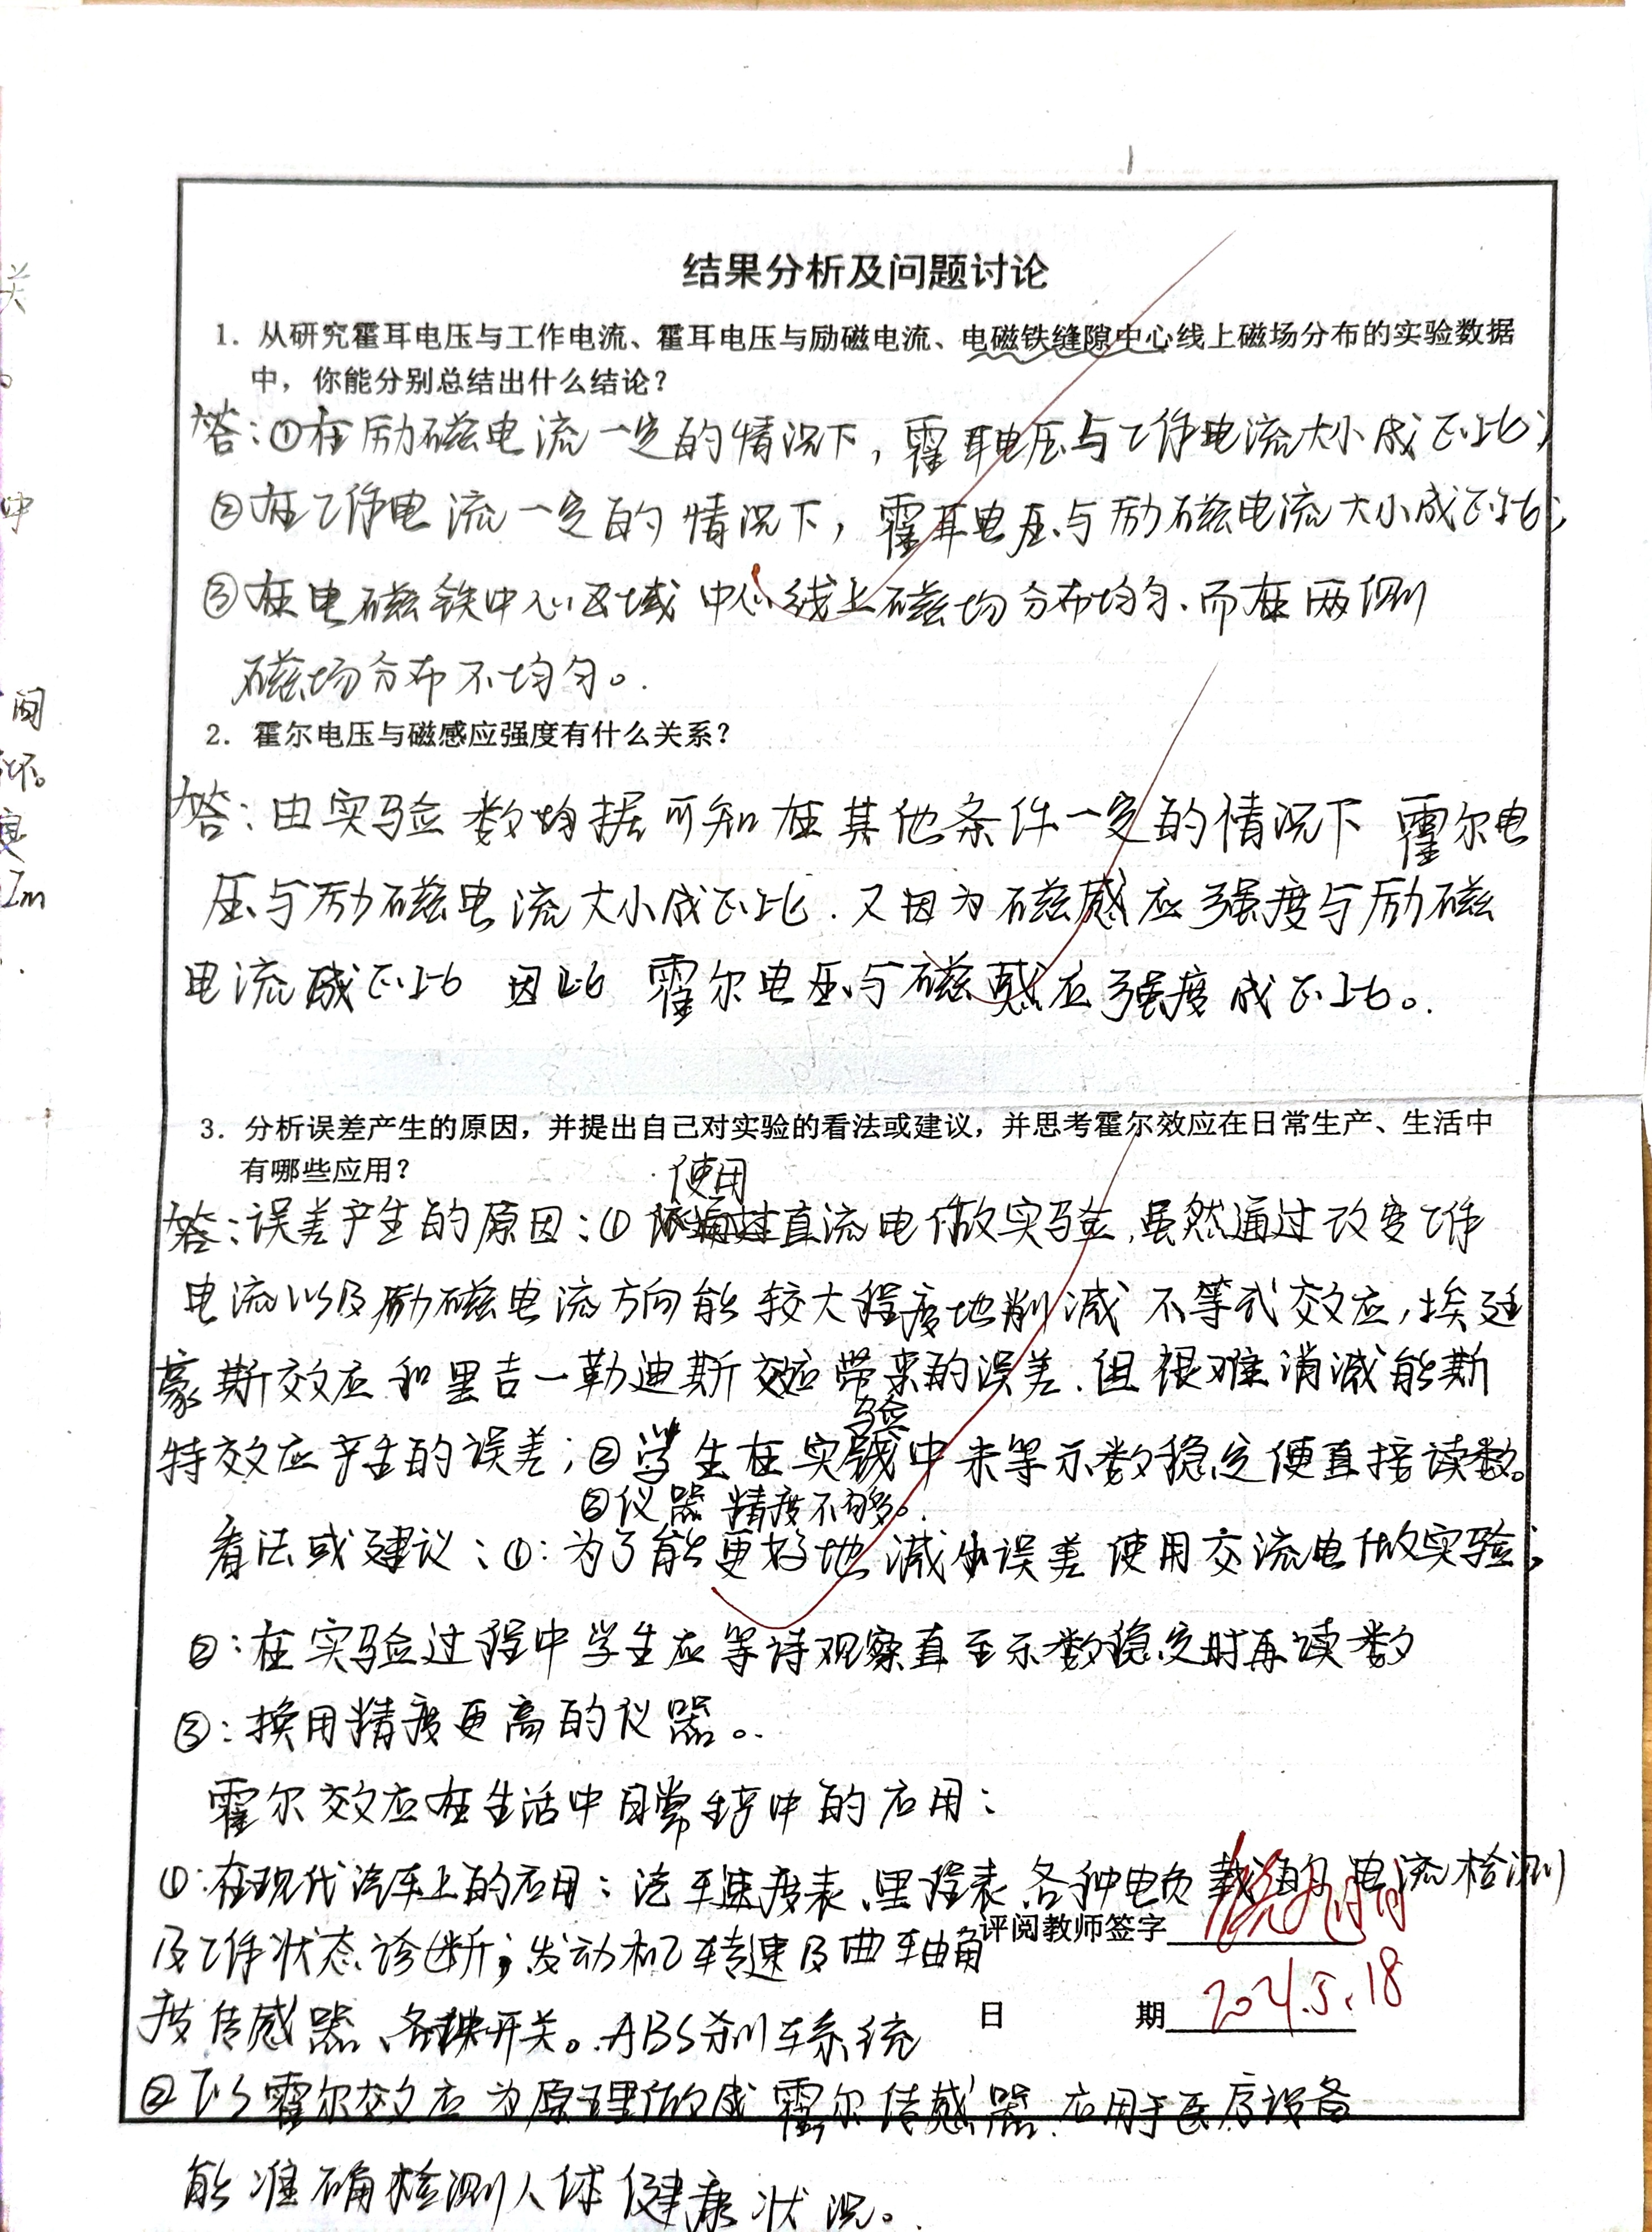 结果分析及问题讨论
1. 从研究霍耳电压与工作电流、霍耳电压与励磁电流、电磁铁缝隙中心线上磁场分布的实验数据
中，你能分别总结出什么结论？
答：①在励磁电流一定的情况下，霍耳电压与工作电流大小成正比；
②在工作电流一定的情况下，霍耳电压与励磁电流大小成正比；
③在电磁铁中心区域中心线上磁场分布均匀、而在两侧
磁场分布不均匀。
2. 霍尔电压与磁感应强度有什么关系？
答：由实验数据可知在其他条件一定的情况下 霍尔电
压与励磁电流大小成正比．又因为磁感应强度与励磁
电流成正比 因此 霍尔电压与磁感应强度成正比。
3. 分析误差产生的原因，并提出自己对实验的看法或建议，并思考霍尔效应在日常生产、生活中
有哪些应用？
使用
答：误差产生的原因：① 直流电做实验，虽然通过改变工作
电流以及励磁电流方向能较大程度地削减不等式效应，埃廷
豪斯效应和里吉一勒迪斯效应带来的误差．但很难消减能斯
验
特效应产生的误差；②学生在实中未等示数稳定便直接读数。
③仪器精度不够。
看法或建议：①：为了能更好地减小误差 使用交流电做实验；
②：在实验过程中学生应等待观察直至示数稳定时再读数
③：换用精度更高的仪器。
霍尔效应在生活中日常生产中的应用：
①：在现代汽车上的应用：汽车速度表、里程表、各种电负载的电流检测
评阅教师签字
及工作状态诊断；发动机转速及曲轴角
度传感器、各种开关。ABS刹车系统
日 期 2021.5.18
②以霍尔效应为原理做成霍尔传感器．应用于医疗设备
能准确检测人体健康状况。
关
中
间
坏。
Im